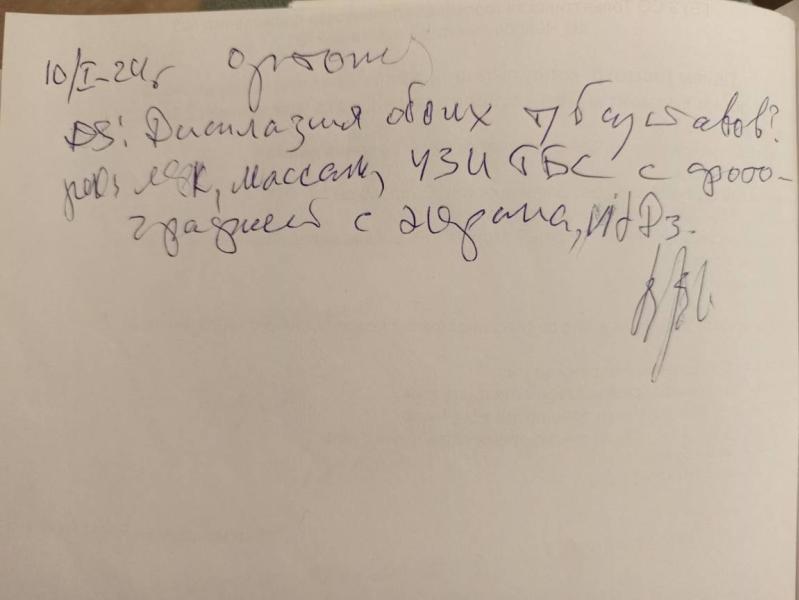 10/I-24г ортопед
DS: Дисплазия обоих т/б суставов?
ЛФК, массаж, УЗИ ТБС с фото-
графией с экрана, vit D3.